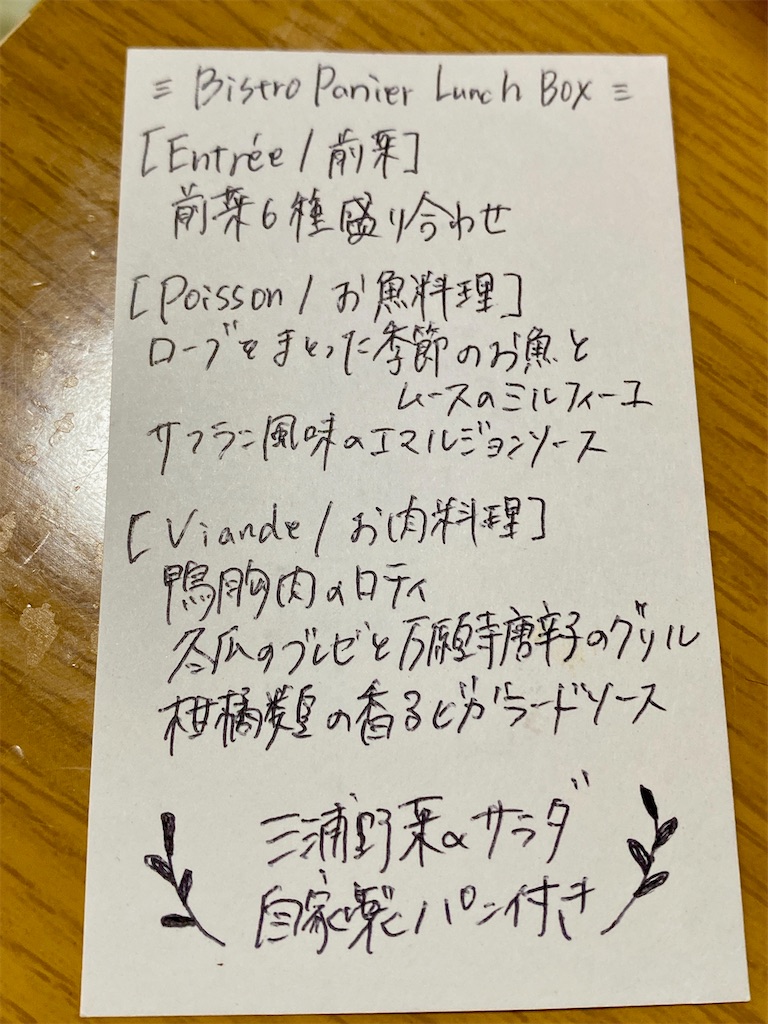 ≡ Bistro Panier Lunch Box ≡
[Entrée / 前菜]
前菜6種盛り合わせ
[Poisson / お魚料理]
ローブをまとった季節のお魚と
ムースのミルフィーユ
サフラン風味のエマルジョンソース
[Viande / お肉料理]
鴨胸肉のロティ
冬瓜のブレゼと万願寺唐辛子のグリル
柑橘類の香るビガラードソース
三浦野菜のサラダ
自家製パン付き